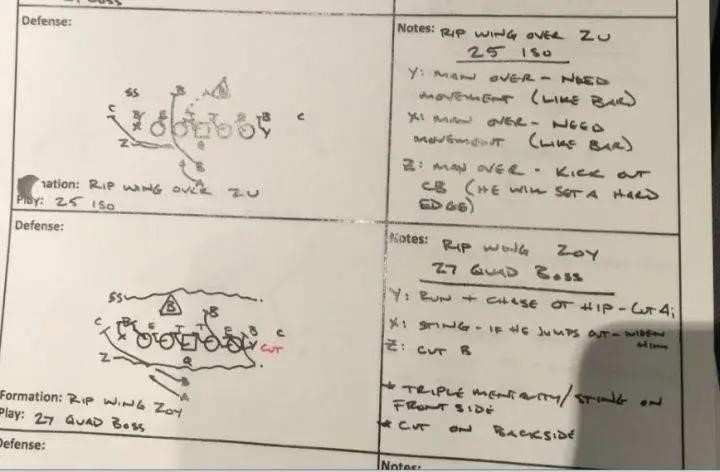 Defense:
Notes: RIP WING OVER ZU
25 ISO
Y: MAN OVER - NEED
MOVEMENT (LIKE BAR)
X: MAN OVER - NEED
MOVEMENT (LIKE BAR)
Z: MAN OVER - KICK OUT
CB (HE WILL SET A HARD
EDGE)
SS B A B
C B E T T E B C
X Y
Z Q
B
A
mation: RIP WING OVER ZU
Play: 25 ISO
Defense:
Notes: RIP WING ZOY
27 QUAD BOSS
Y: RUN + CHASE OT HIP - CUT
X: STING - IF HE JUMPS OUT - WIDEN
HIM
Z: CUT B
* TRIPLE MENTALITY/STING ON
FRONT SIDE
* CUT ON BACKSIDE
SS B B
C B E T T E B C
X Y CUT
Z Q
B
A
Formation: RIP WING ZOY
Play: 27 QUAD BOSS
Defense:
Notes: